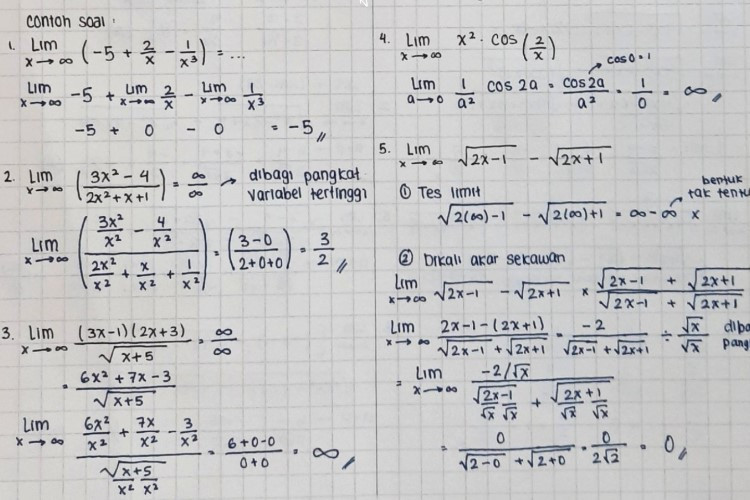 contoh soal :
1. Lim x→∞ (-5 + 2/x - 1/x³) = ...
Lim x→∞ -5 + Lim x→∞ 2/x - Lim x→∞ 1/x³
-5 + 0 - 0 = -5 //
2. Lim x→∞ ((3x² - 4)/(2x² + x + 1)) = ∞/∞ → dibagi pangkat
variabel tertinggi
Lim x→∞ ((3x²/x² - 4/x²)/(2x²/x² + x/x² + 1/x²)) = ((3-0)/(2+0+0)) = 3/2 //
3. Lim x→∞ (3x-1)(2x+3)/√(x+5) = ∞/∞
= (6x² + 7x - 3)/√(x+5)
Lim x→∞ (6x²/x² + 7x/x² - 3/x²)/√(x/x² + 5/x²) = (6+0-0)/(0+0) = ∞ //
4. Lim x→∞ x² · cos (2/x)
cos 0 = 1
Lim a→0 1/a² cos 2a = cos 2a/a² = 1/0 = ∞ //
5. Lim x→∞ √(2x-1) - √(2x+1)
① Tes limit
bentuk
tak tentu
√(2(∞)-1) - √(2(∞)+1) = ∞-∞ x
② Dikali akar sekawan
Lim x→∞ √(2x-1) - √(2x+1) × (√(2x-1) + √(2x+1))/(√(2x-1) + √(2x+1))
Lim x→∞ (2x-1-(2x+1))/(√(2x-1) + √(2x+1)) = -2/(√(2x-1) + √(2x+1)) ÷ √x/√x
= Lim x→∞ (-2/√x)/(√(2x-1)/(√x √x) + √(2x+1)/(√x √x))
= 0/(√(2-0) + √(2+0)) = 0/(2√2) = 0 //